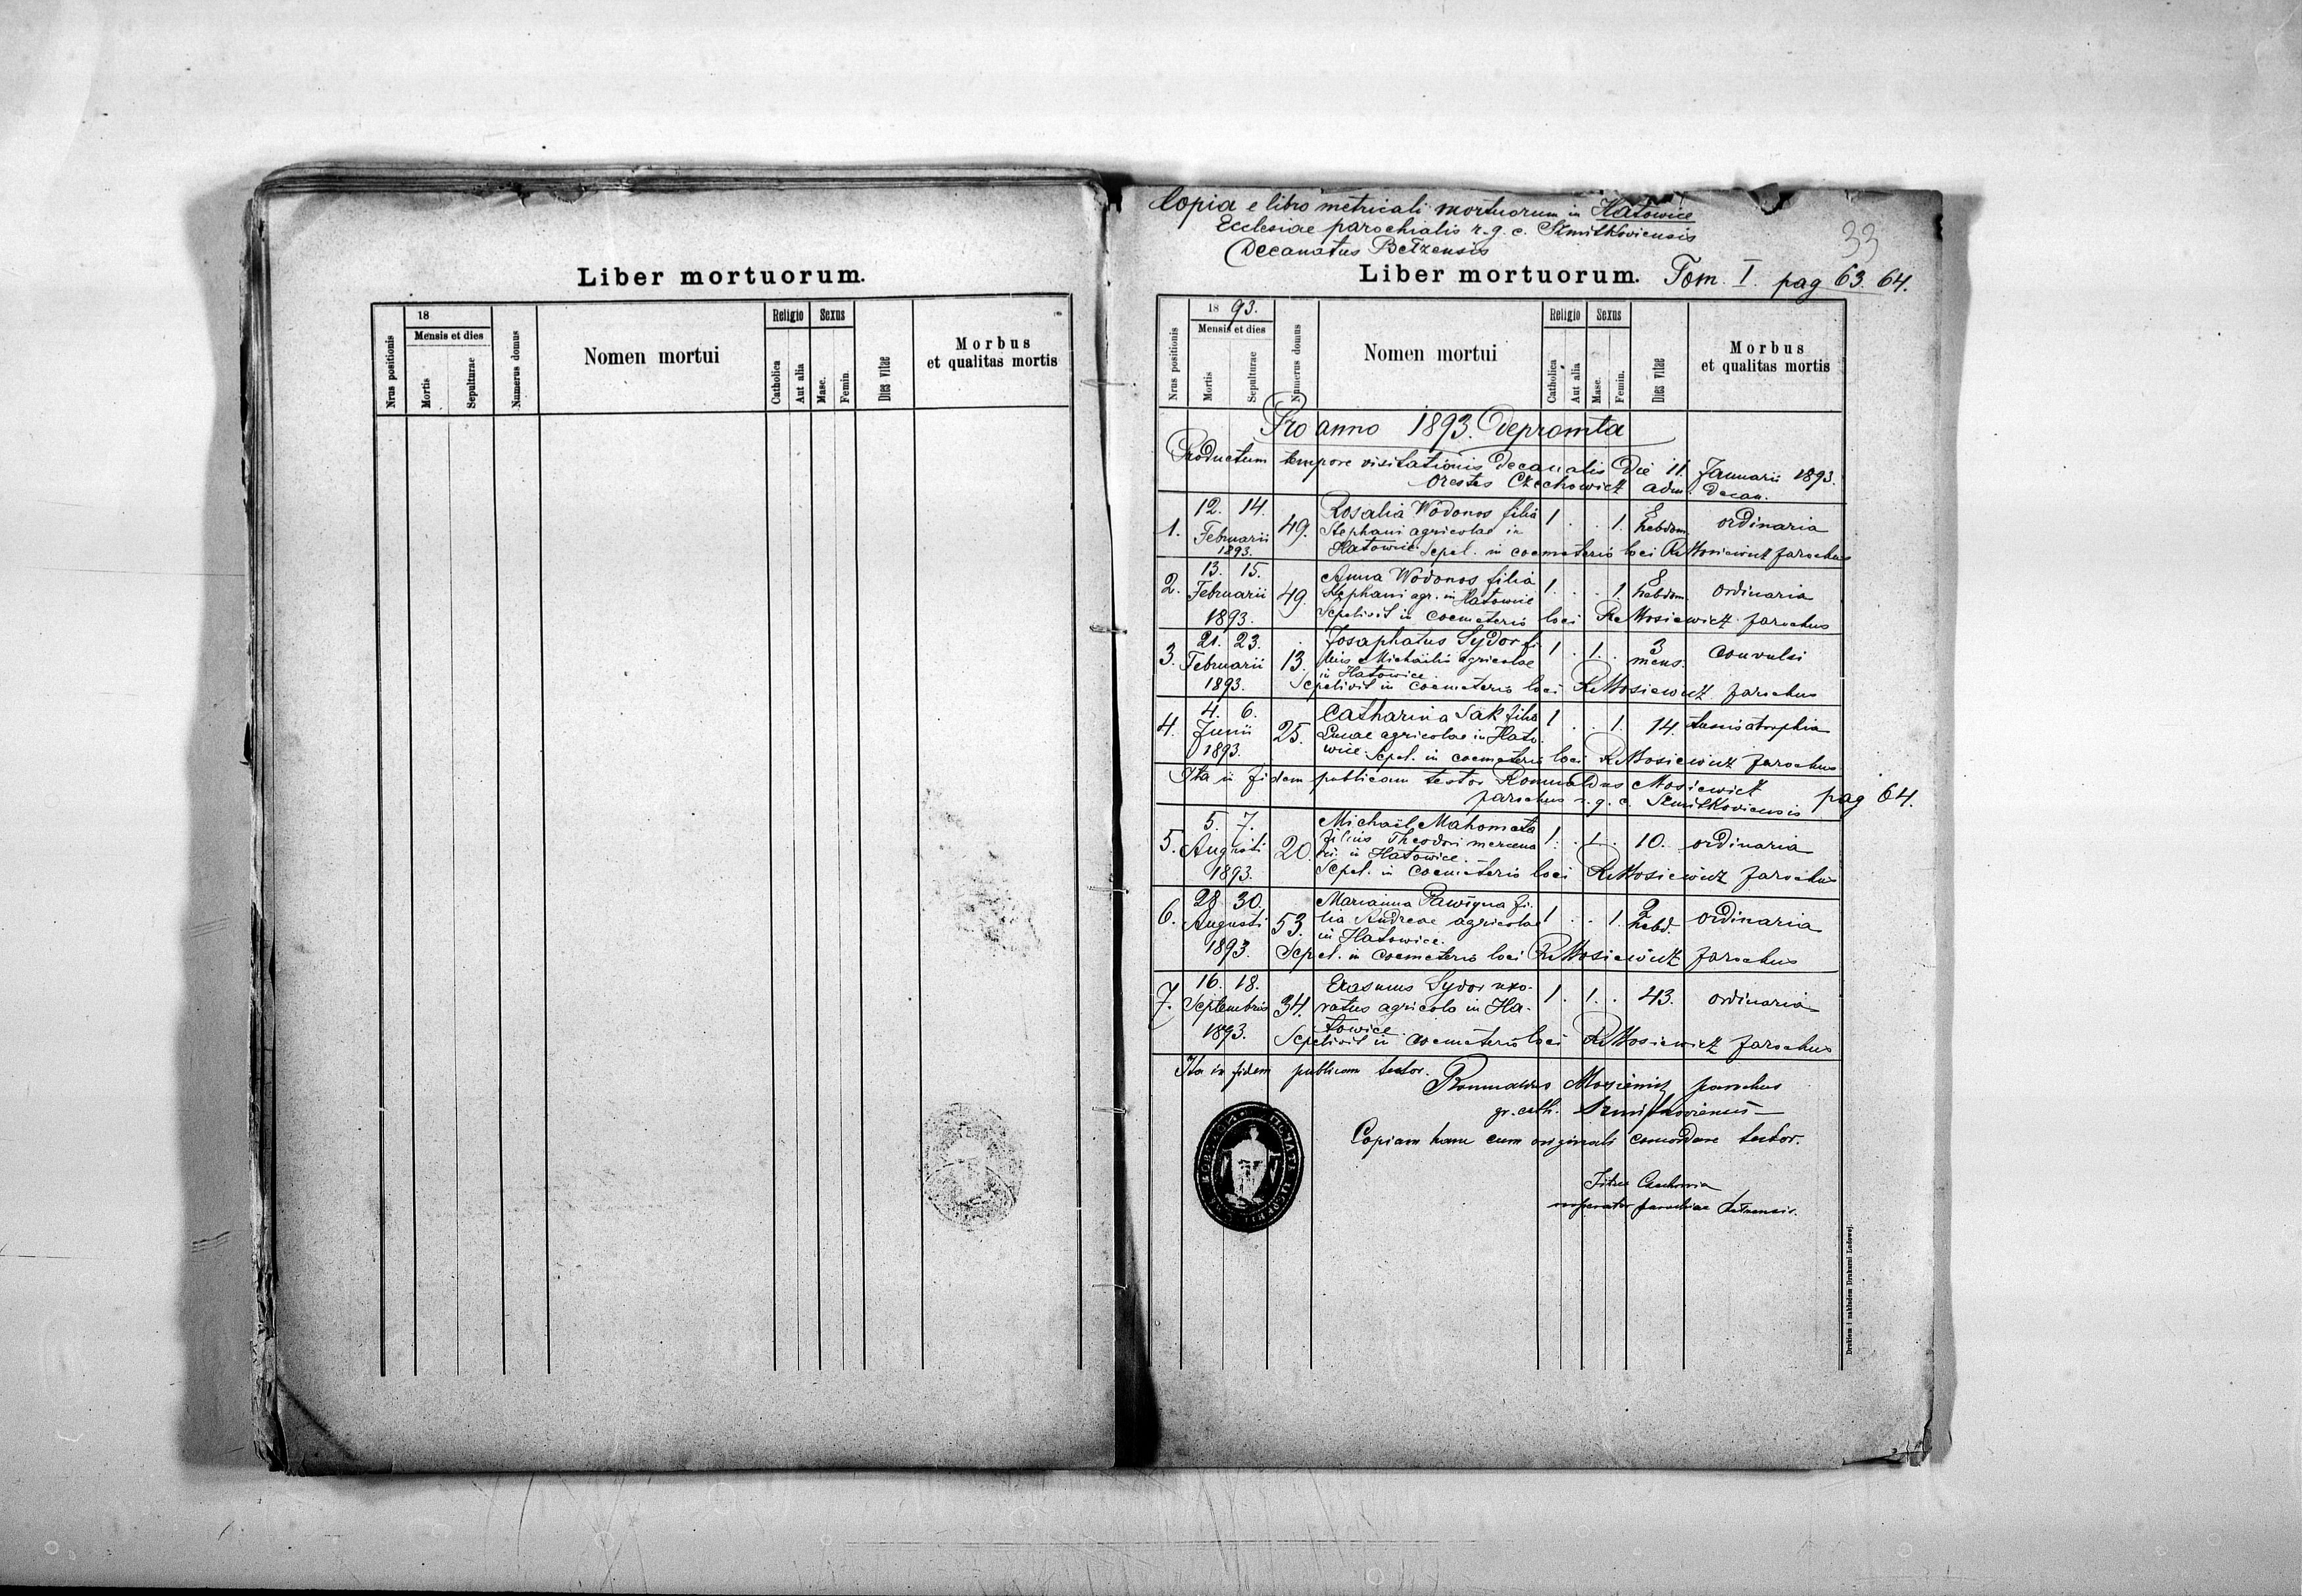 Liber mortuorum.
18
Religio Sexus
Mensis et dies
Nrus positionis
Mortis
Sepulturae
Numerus domus
Nomen mortui
Catholica
Aut alia
Masc.
Femin.
Dies vitae
Morbus
et qualitas mortis
Copia e libro metricali mortuorum in Hatowice
Ecclesiae parochialis r. g. c. Szmitkoviensis
Decanatus Betzensis
33
Liber mortuorum. Tom. I. pag 63. 64.
18 93.
Religio Sexus
Mensis et dies
Nrus positionis
Mortis
Sepulturae
Numerus domus
Nomen mortui
Catholica
Aut alia
Masc.
Femin.
Dies vitae
Morbus
et qualitas mortis
Pro anno 1893. Depromta
Productum tempore visitationis decanalis Die 11. Januarii 1893.
Orestes Czechowicz adm. Decan.
12. 14. Rosalia Wodonos filia 8
1. Februarii 49. Stephani agricolae in 1 . . 1. hebdom. ordinaria
1893. Hatowice. Sepel. in coemeterio loci R Mosiewicz parochus
13. 15. Anna Wodonos filia 8
2. Februarii 49. Stephani agr. in Hatowice 1. . . 1 hebdom. ordinaria
1893. Sepelivit in coemeterio loci R Mosiewicz parochus
21. 23. Josaphatus Sydor fi- 3
3. Februarii 13. lius Michaëlis agricolae 1 . 1. . mens. convulsi
in Hatowice
1893. Sepelivit in coemeterio loci R Mosiewicz parochus
4. 6. Catharina Sak filia 1 . . 1. 14.
4. Junii 25. Lucae agricolae in Hato
1893. wice. Sepel. in coemeterio loci R Mosiewicz parochus
Ita in fidem publicam testor Romualdus Mosiewicz
parochus r. g. c. Szmitkoviensis pag 64.
5. 7. Michaël Mahometa
5. Augusti 20. filius Theodori mercena 1. . 1. . 10. ordinaria
rii in Hatowice.
1893. Sepel. in coemeterio loci R Mosiewicz parochus
28 30. Marianna fi- 2
6. Augusti 53. lia Andreae agricolae 1 . . 1. hebd. ordinaria
in Hatowice.
1893. Sepel. in coemeterio loci R Mosiewicz parochus
16. 18. Erasmus Sydor uxo-
7. Septembris 34. ratus agricola in Ha- 1. . 1. . 43. ordinaria
towice.
1893. Sepelivit in coemeterio loci R Mosiewicz parochus
Ita in fidem publicam testor.
Romualdus Mosiewicz parochus
gr. cath. Szmitkoviensis
Copiam hanc cum originali concordare testor.
cooperator parochiae
Drukiem i nakładem Drukarni Ludowej.